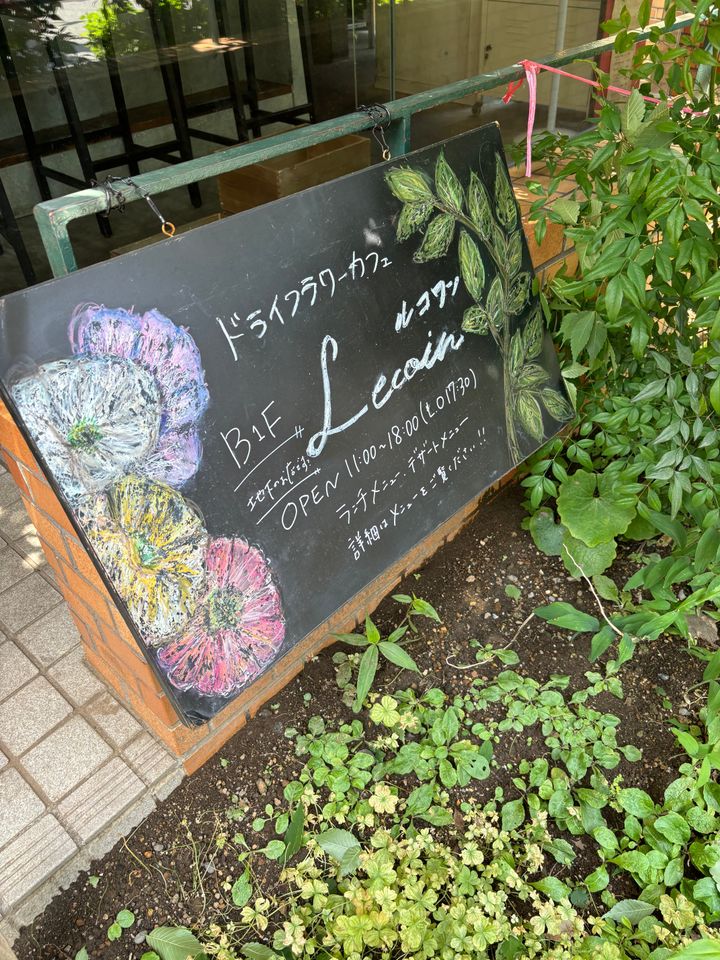 ドライフラワーカフェ
ルコワン
Lecoin
B1F
OPEN 11:00~18:00(L.O 17:30)
ランチメニュー・デザートメニュー
詳細はメニューをご覧ください!!